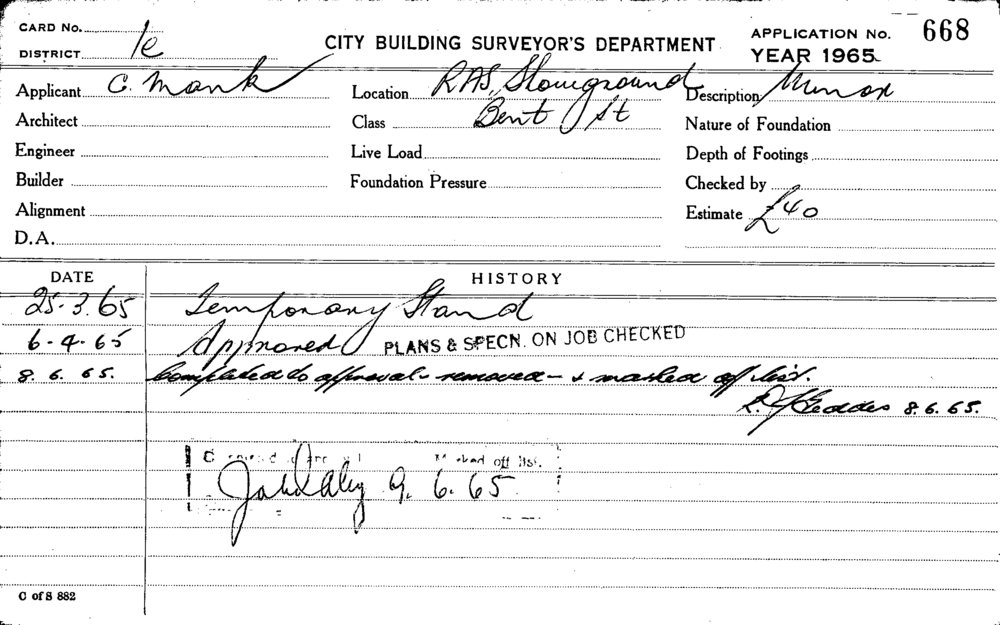 CARD No. APPLICATION No. 668
DISTRICT 1e CITY BUILDING SURVEYOR'S DEPARTMENT YEAR 1965
Applicant C. Monk Location RAS, Showground Description Minor
Architect Class Bent St Nature of Foundation
Engineer Live Load Depth of Footings
Builder Foundation Pressure Checked by
Alignment Estimate £40
D.A.
DATE HISTORY
25.3.65 Temporary Stand
6-4-65 Approved PLANS & SPECN. ON JOB CHECKED
8.6.65. Completed to approval - removed - & marked off list.
Geddes 8.6.65.
off list.
John Daley 9.6.65
C of S 882